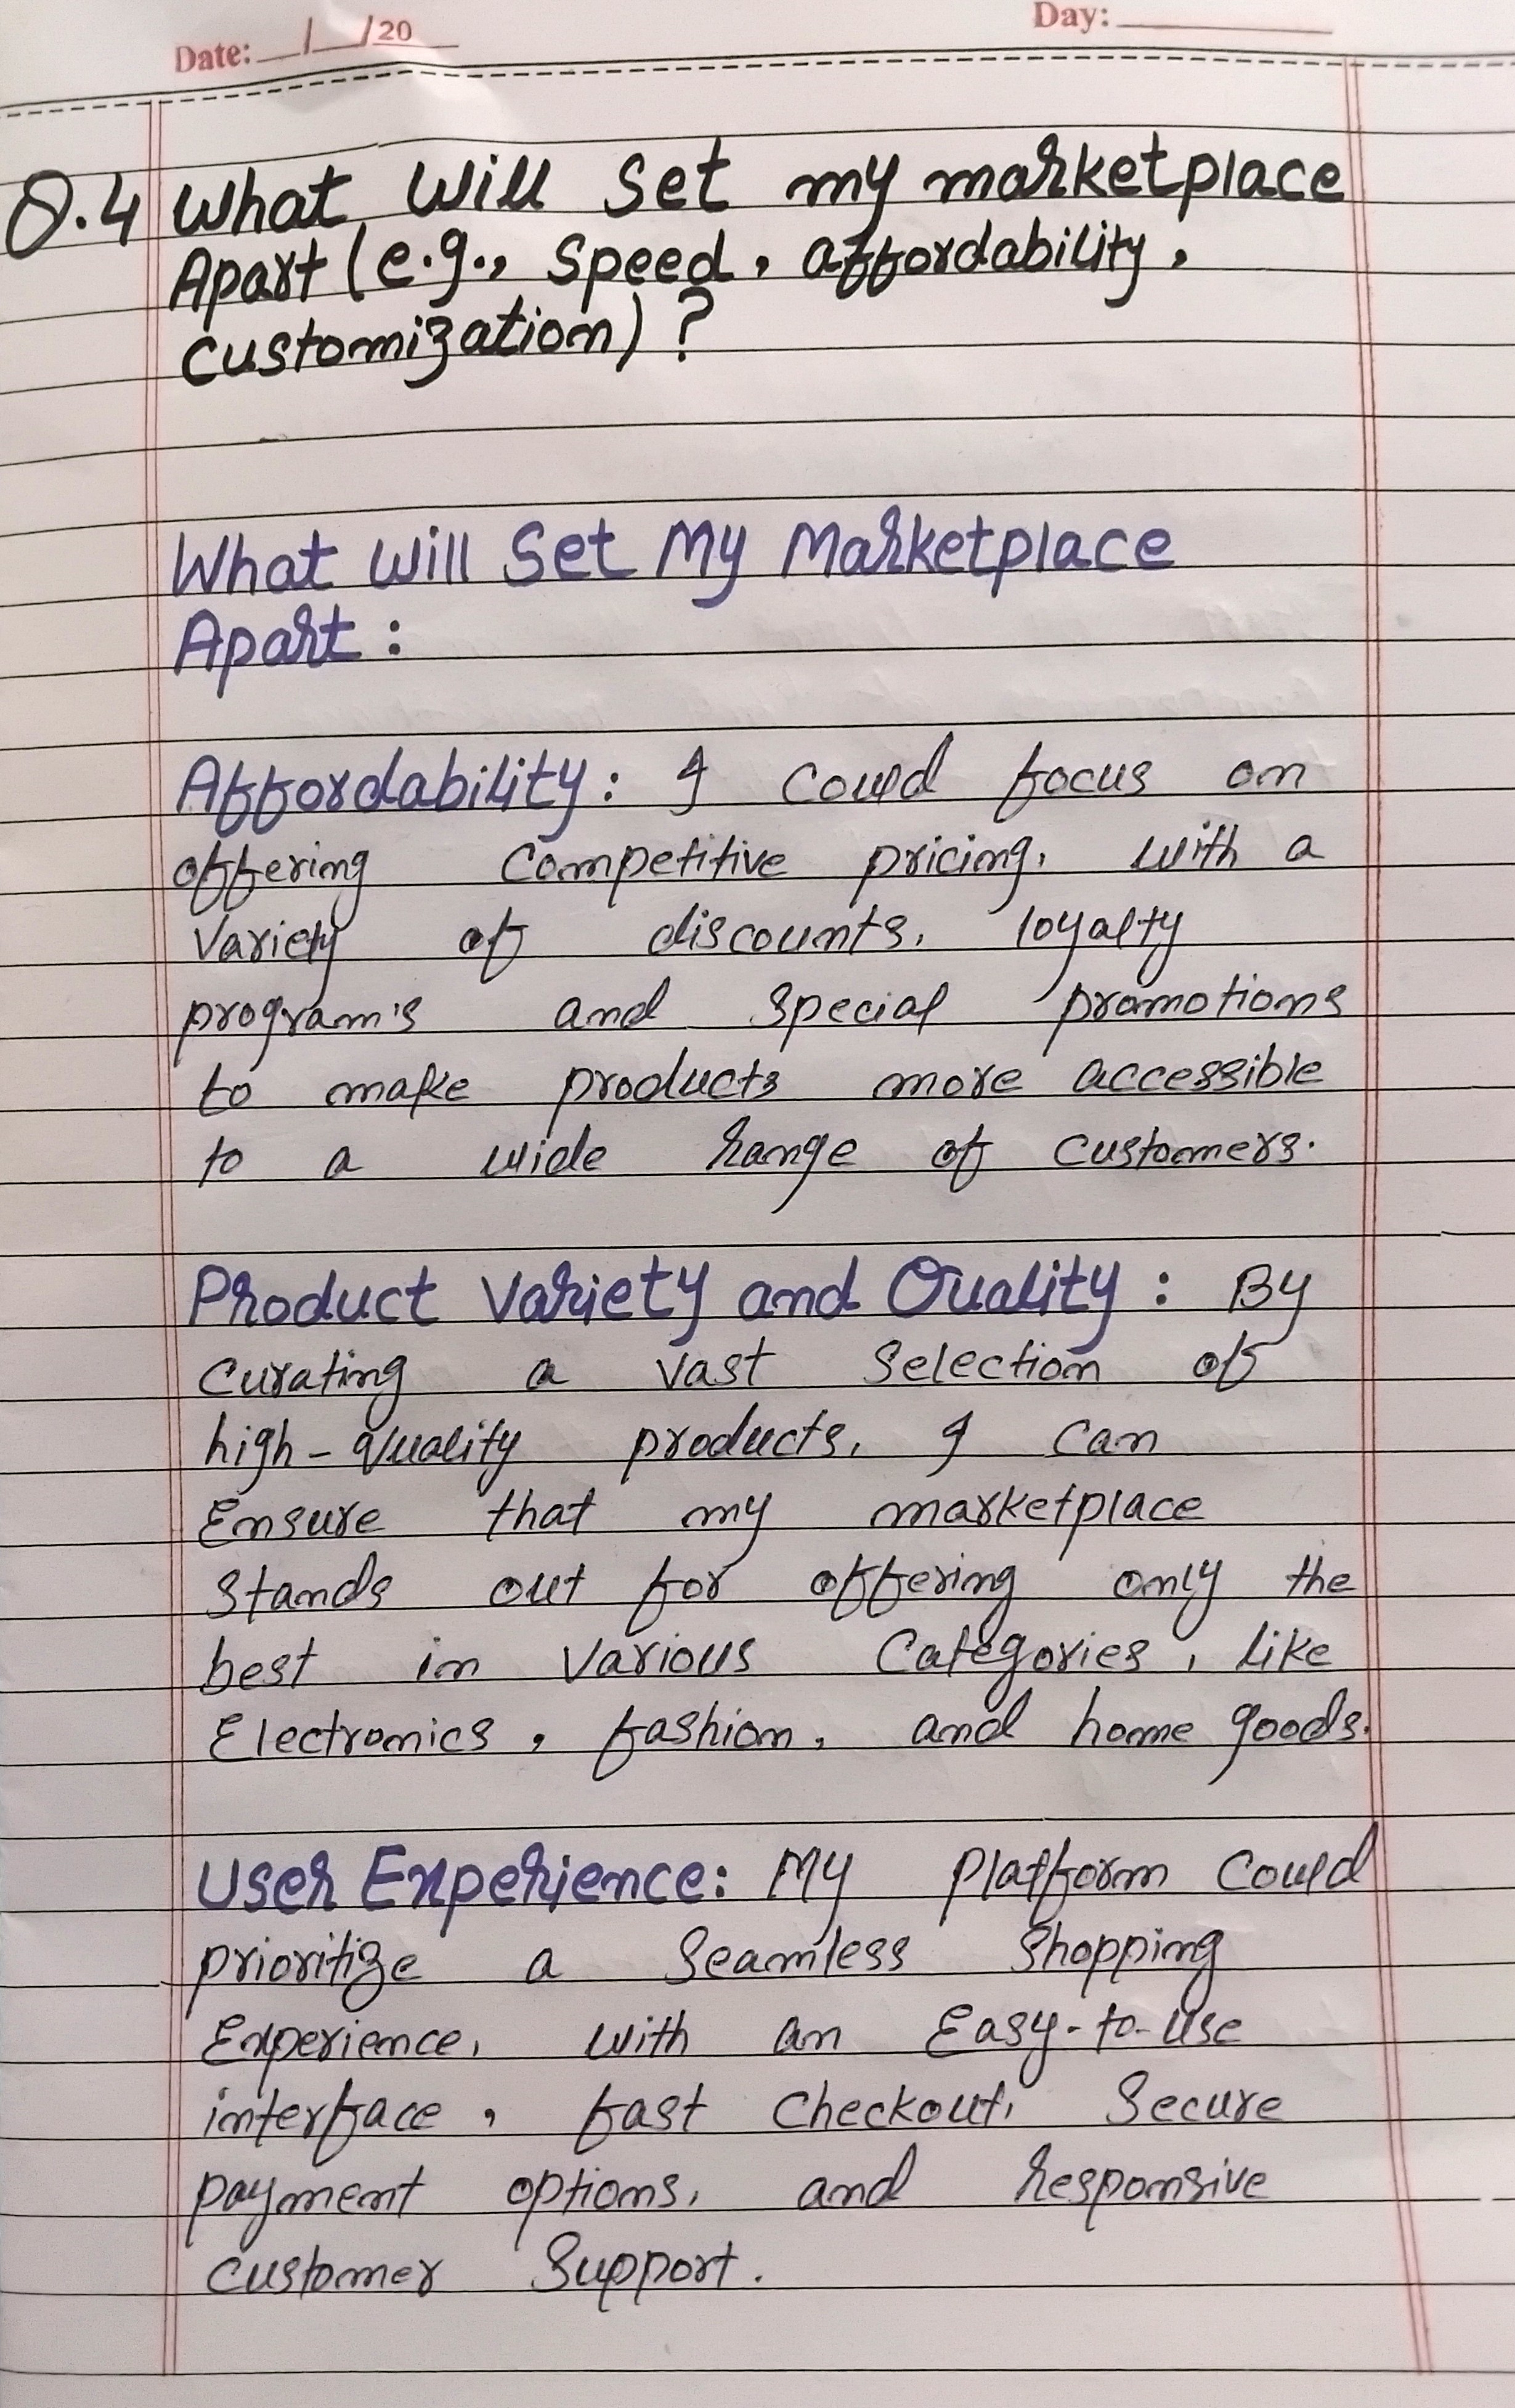 Date: __/__/20__ Day: ______
Q.4 What Will Set my marketplace
Apart (e.g., Speed, affordability,
customization) ?
What Will Set My Marketplace
Apart :
Affordability: I Could focus on
offering Competitive pricing, with a
Variety of discounts, loyalty
program's and Special promotions
to make products more accessible
to a wide range of Customers.
Product Variety and Quality : By
Curating a vast Selection of
high-quality products, I Can
Ensure that my marketplace
Stands out for offering only the
best in Various Categories, like
Electronics, fashion, and home goods.
User Experience: My Platform Could
prioritize a Seamless Shopping
Experience, with an Easy-to-Use
interface, fast Checkout, Secure
payment options, and responsive
Customer Support.